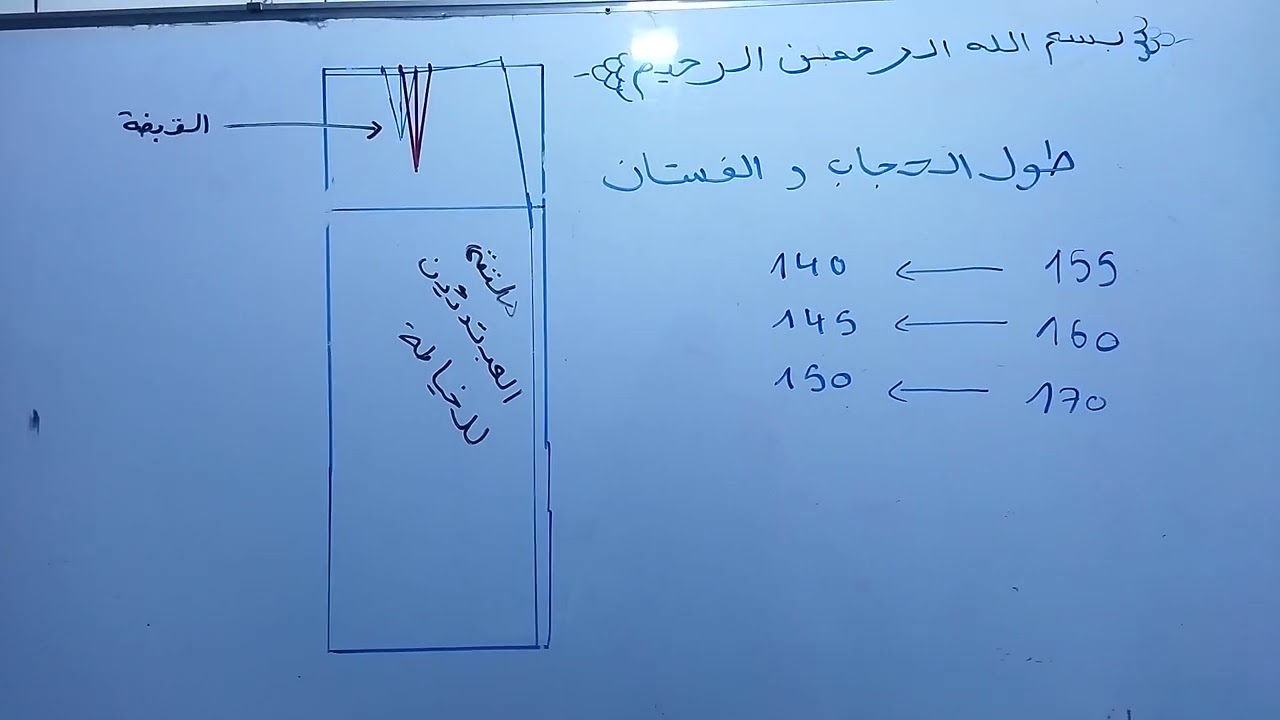 بسم الله الرحمن الرحيم
طول الحجاب و الفستان
155 ← 140
160 ← 145
170 ← 150
القبضة
المبتدئين
للخياطة